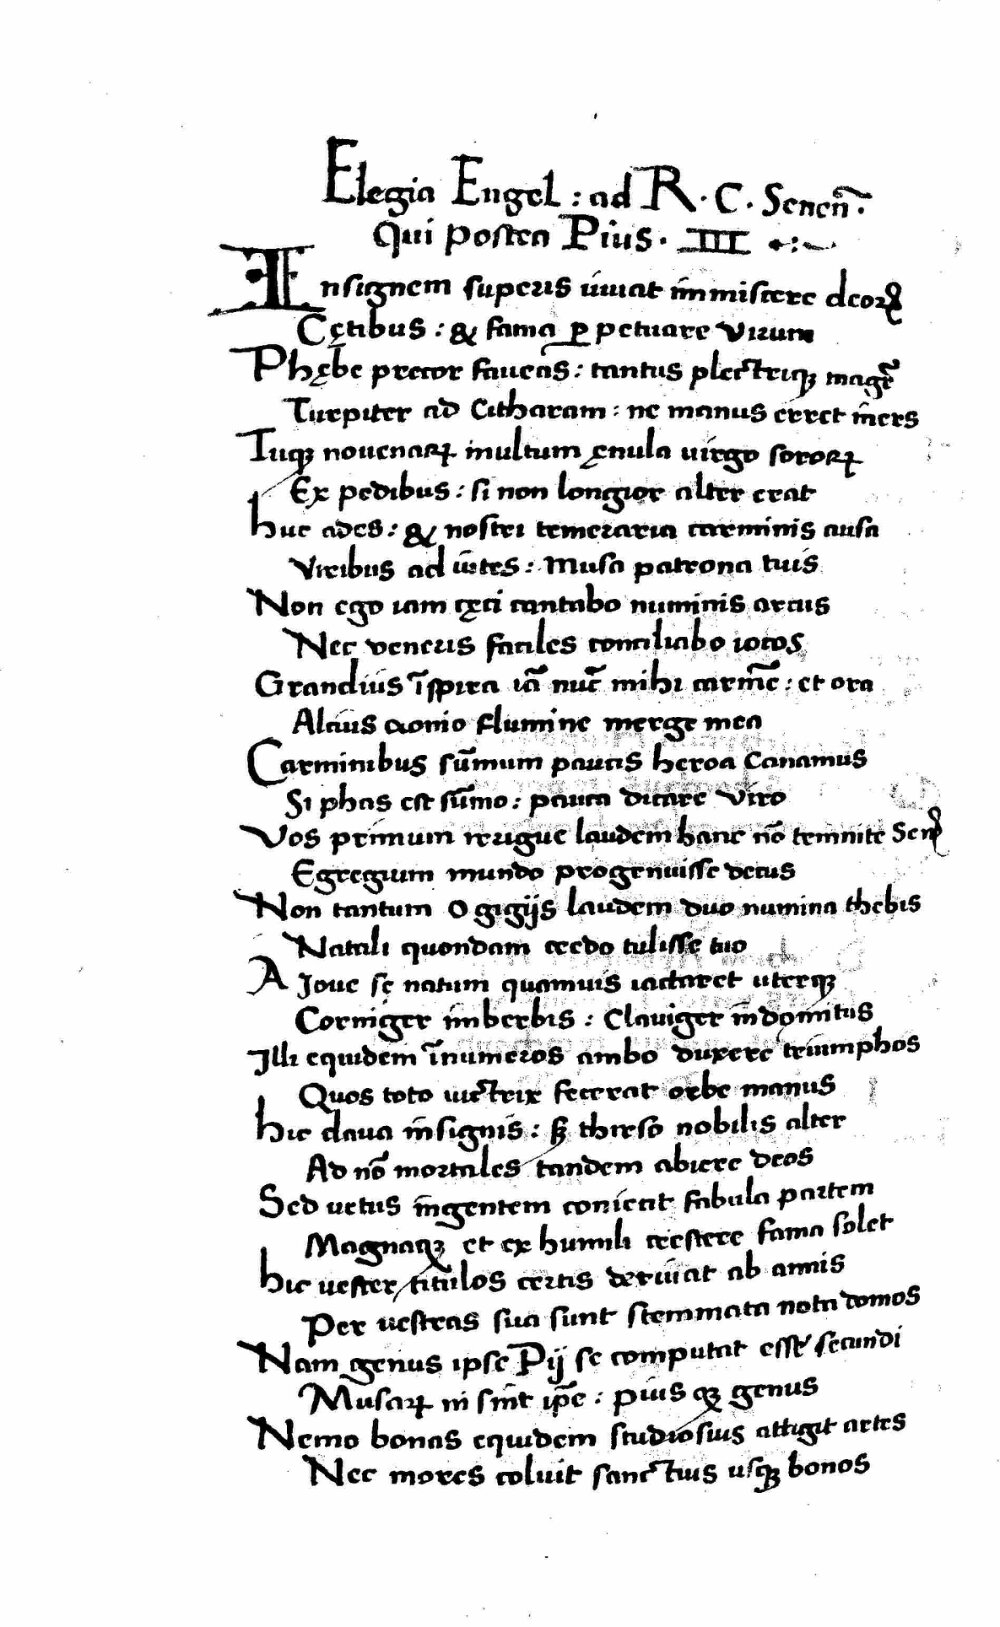 Elegia Engel : ad R. C. Senen̄.
Qui postea Pius. III
INsignem superis iuuat immiscere deorꝝ
Cętibus : & fama ꝑpetuare Virum
Phębe precor faueas : tantus plectriqꝫ magr̄
Turpiter ad Citharam : ne manus erret īners
Tuqꝫ nouenarꝝ multum ęmula uirgo sororꝝ
Ex pedibus : si non longior alter erat
huc ades : & nostri temeraria carminis ausa
Viribus ad iūtes : Musa patrona tuis
Non ego iam cęci cantabo numinis arcus
Nec veneris faciles conciliabo iocos
Grandius īspira iā nuc̄ mihi carmē : et ora
Alcius aonio flumine merge mea
Carminibus sūmum paucis heroa Canamus
Si phas est sūmo : pauca dicare Viro
Vos primum reliquę laudem hanc nō temnite Sen
Egregium mundo progenuisse decus
Non tantum Ogigijs laudem duo numina thebis
Natali quondam credo tulisse suo
A Joue sę natum quamuis iactaret uterqꝫ
Corniger imberbis : Clauiger indomitus
Illi equidem īnumeros ambo duxere triumphos
Quos toto uictrix fecerat orbe manus
hic claua insignis : sꝫ thirso nobilis alter
Ad nō mortales tandem abiere deos
Sed uetus ingentem conficit fabula partem
Magnaqꝫ et ex humili crescere fama solet
hic uester titulos certis deriuat ab annis
Per uestras sua sunt stemmata nota domos
Nam genus ipse Pij se computat esse secundi
Musarꝝ ni sint ip̄e : pius qꝫ genus
Nemo bonas equidem studiosius attigit artes
Nec mores coluit sanctius usqꝫ bonos